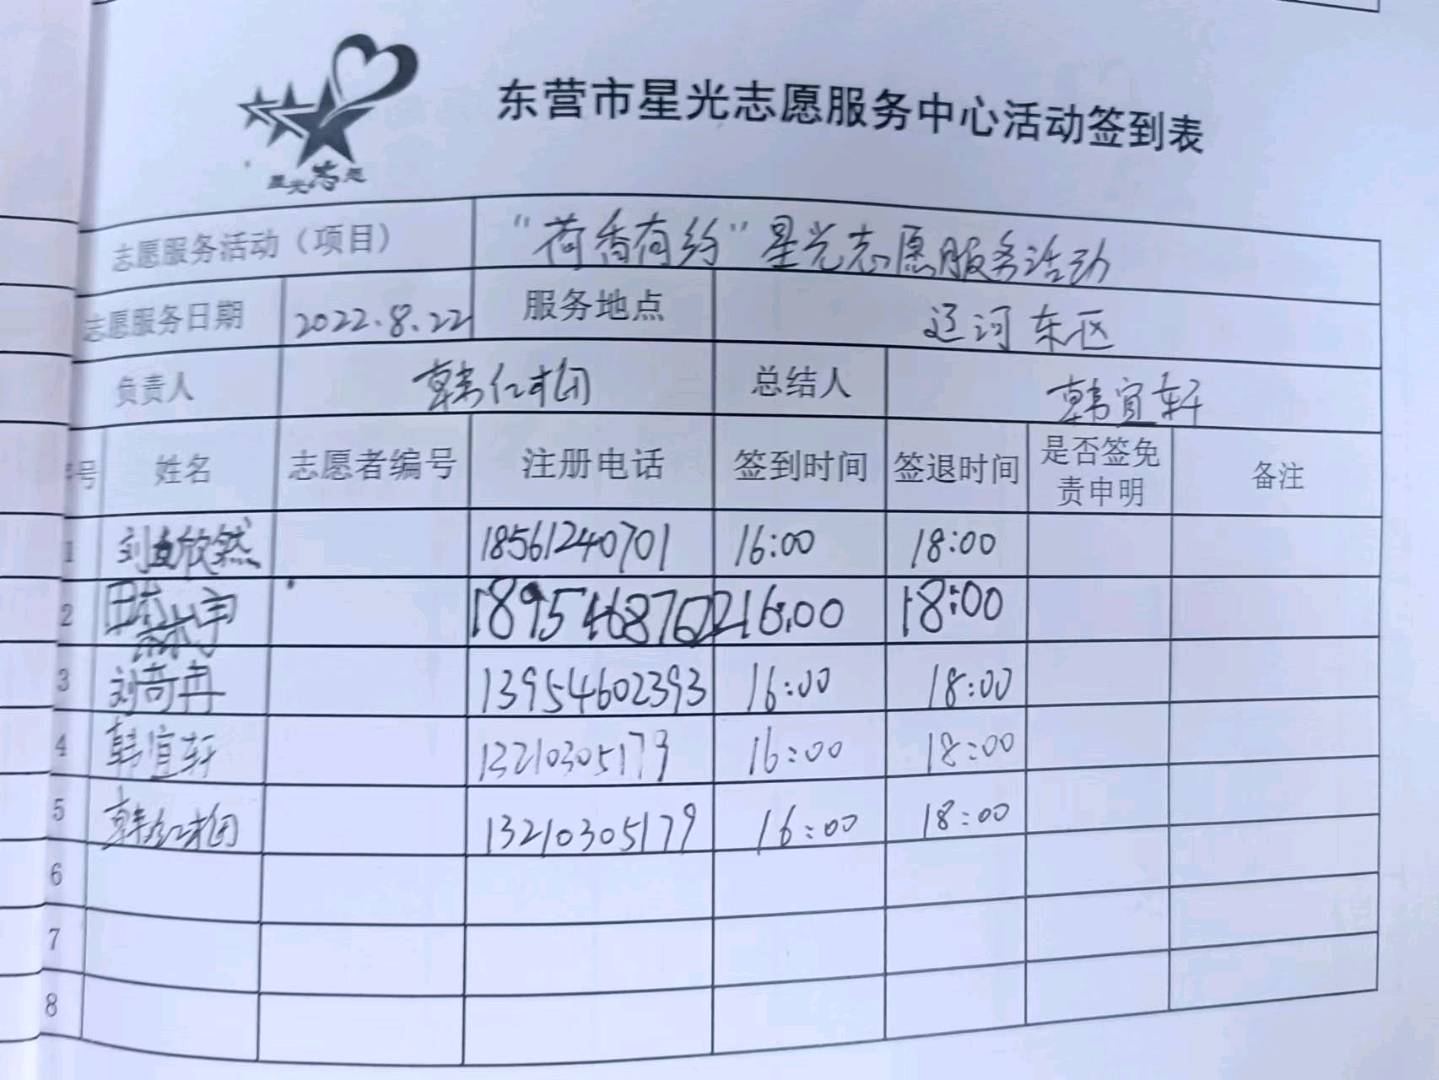 星光志愿
东营市星光志愿服务中心活动签到表
志愿服务活动（项目） “荷香有约”星光志愿服务活动
志愿服务日期 2022.8.22 服务地点 辽河东区
负责人 韩红梅 总结人 韩宜轩
号 姓名 志愿者编号 注册电话 签到时间 签退时间 是否签免责申明 备注
1 刘欣然 18561240701 16:00 18:00
2 18954687622 16:00 18:00
3 刘奇冉 13954602393 16:00 18:00
4 韩宜轩 13210305179 16:00 18:00
5 韩红梅 13210305179 16:00 18:00
6
7
8